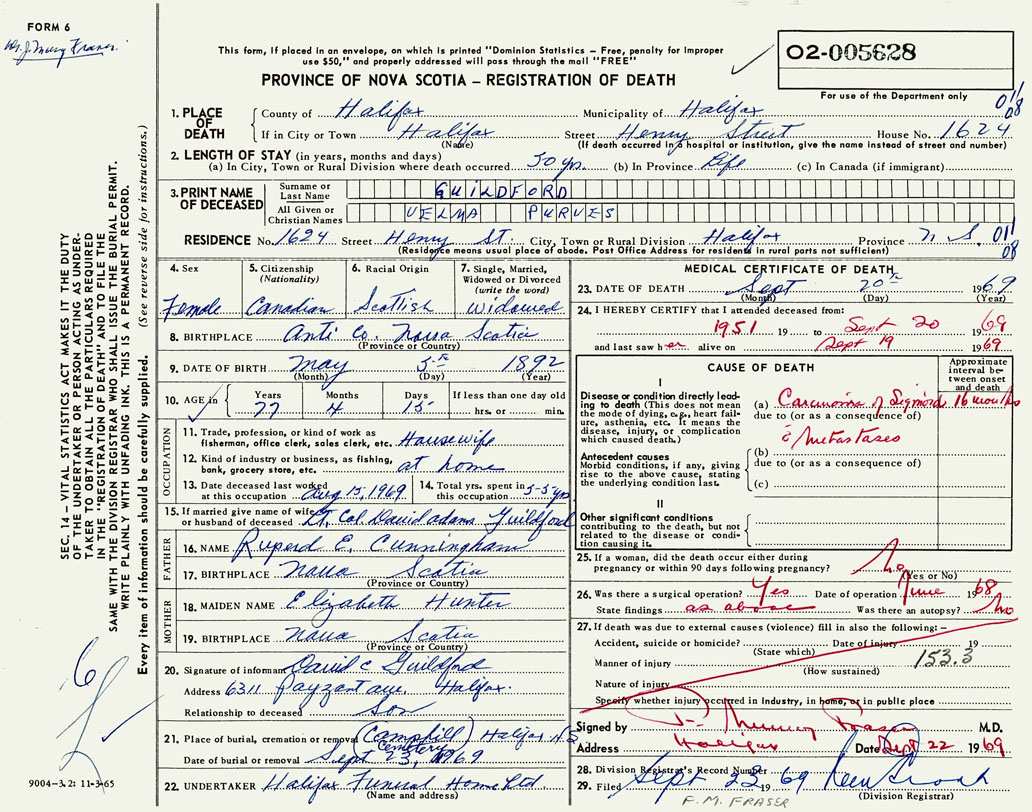 FORM 6
Dr. J. Murry Fraser.
This form, if placed in an envelope, on which is printed "Dominion Statistics – Free, penalty for improper
use $50," and properly addressed will pass through the mail "FREE"
PROVINCE OF NOVA SCOTIA – REGISTRATION OF DEATH
02-005628
For use of the Department only
011
08
1. PLACE OF DEATH
County of Halifax Municipality of Halifax
If in City or Town Halifax Street Henry Street House No. 1624
(Name) (If death occurred in a hospital or institution, give the name instead of street and number)
2. LENGTH OF STAY (in years, months and days)
(a) In City, Town or Rural Division where death occurred 50 yrs. (b) In Province Life (c) In Canada (if immigrant)
3. PRINT NAME OF DECEASED
Surname or Last Name GUILDFORD
All Given or Christian Names VELMA PURVES
RESIDENCE No. 1624 Street Henry St. City, Town or Rural Division Halifax Province N.S. 011
08
(Residence means usual place of abode. Post Office Address for residents in rural parts not sufficient)
4. Sex 5. Citizenship (Nationality) 6. Racial Origin 7. Single, Married, Widowed or Divorced (write the word)
Female Canadian Scottish Widowed
8. BIRTHPLACE Anti Co. Nova Scotia
(Province or Country)
9. DATE OF BIRTH May 5th 1892
(Month) (Day) (Year)
10. AGE in Years Months Days If less than one day old
77 4 15 hrs. or min.
OCCUPATION
11. Trade, profession, or kind of work as fisherman, office clerk, sales clerk, etc. Housewife
12. Kind of industry or business, as fishing, bank, grocery store, etc. at home
13. Date deceased last worked at this occupation Aug 15, 1969 14. Total yrs. spent in this occupation 55 yrs
15. If married give name of wife or husband of deceased Lt. Col. David Adams Guildford
FATHER
16. NAME Ruperd E. Cunningham
17. BIRTHPLACE Nova Scotia
(Province or Country)
MOTHER
18. MAIDEN NAME Elizabeth Hunter
19. BIRTHPLACE Nova Scotia
(Province or Country)
20. Signature of informant David C Guildford
Address 6311 Payzant ave. Halifax.
Relationship to deceased Son
21. Place of burial, cremation or removal (Camphill Cemetery) Halifax N.S
Date of burial or removal Sept 23, 1969
22. UNDERTAKER Halifax Funeral Home Ltd.
(Name and address)
MEDICAL CERTIFICATE OF DEATH
23. DATE OF DEATH Sept 20th 1969
(Month) (Day) (Year)
24. I HEREBY CERTIFY that I attended deceased from:
1951 19 to Sept 20 1969
and last saw her alive on Sept 19 1969
CAUSE OF DEATH
Approximate interval between onset and death
I
Disease or condition directly leading to death (This does not mean the mode of dying, e.g., heart failure, asthenia, etc. It means the disease, injury, or complication which caused death.)
(a) Carcinoma of Sigmoid 16 months
due to (or as a consequence of)
c̄ Metastases
Antecedent causes
Morbid conditions, if any, giving rise to the above cause, stating the underlying condition last.
(b)
due to (or as a consequence of)
(c)
II
Other significant conditions
contributing to the death, but not related to the disease or condition causing it.
25. If a woman, did the death occur either during pregnancy or within 90 days following pregnancy? No
(Yes or No)
26. Was there a surgical operation? Yes Date of operation June 1968
State findings as above Was there an autopsy? No
27. If death was due to external causes (violence) fill in also the following:–
Accident, suicide or homicide? Date of injury 19
(State which)
Manner of injury 153.3
(How sustained)
Nature of injury
Specify whether injury occurred in Industry, in home, or in public place
Signed by F. Murray Fraser M.D.
Address Halifax Date Sept 22 1969
28. Division Registrar's Record Number
29. Filed Sept 22 1969
(Division Registrar)
F. M. FRASER
SEC. 14 – VITAL STATISTICS ACT MAKES IT THE DUTY
OF THE UNDERTAKER OR PERSON ACTING AS UNDER-
TAKER TO OBTAIN ALL THE PARTICULARS REQUIRED
IN THE "REGISTRATION OF DEATH" AND TO FILE THE
SAME WITH THE DIVISION REGISTRAR WHO SHALL ISSUE THE BURIAL PERMIT.
WRITE PLAINLY WITH UNFADING INK. THIS IS A PERMANENT RECORD.
Every item of information should be carefully supplied. (See reverse side for instructions.)
6
9004-3.2: 11-3-65